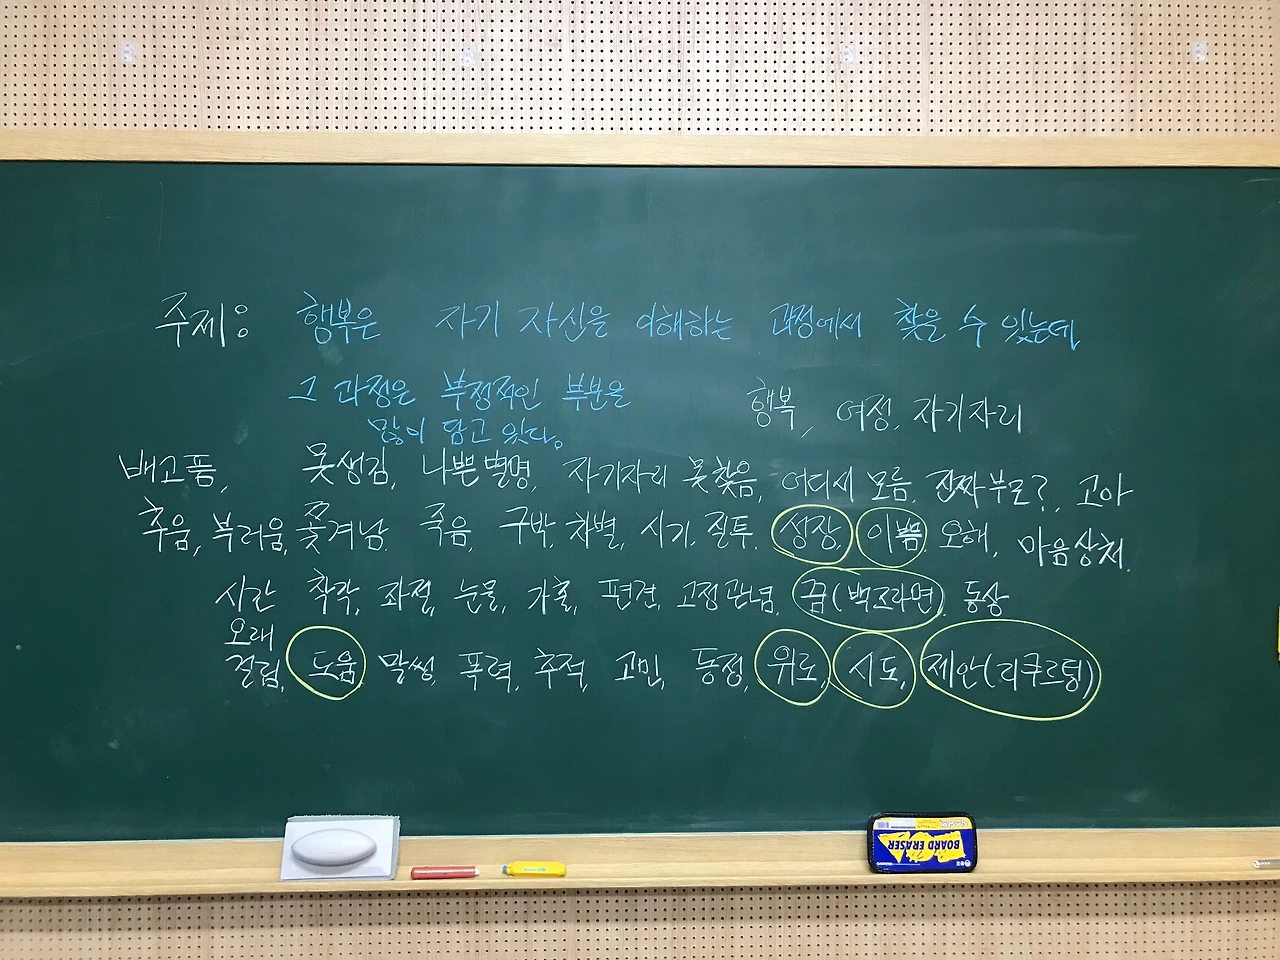 주제: 행복은 자기 자신을 이해하는 과정에서 찾을 수 있는데,
그 과정은 부정적인 부분을
많이 담고 있다.
행복, 여정, 자기자리
배고픔, 못생김, 나쁜별명, 자기자리 못찾음, 어디서 모름, 진짜부모?, 고아
추움, 부러움, 쫓겨남, 죽음, 구박, 차별, 시기, 질투, 성장, 이쁨, 오해, 마음상처,
시간 착각, 좌절, 눈물, 가출, 편견, 고정관념, 꿈(백조라면), 동상
오래
걸림, 도움, 말썽, 폭력, 추적, 고민, 동정, 위로, 시도, 제안(리쿠르팅)
BOARD ERASER